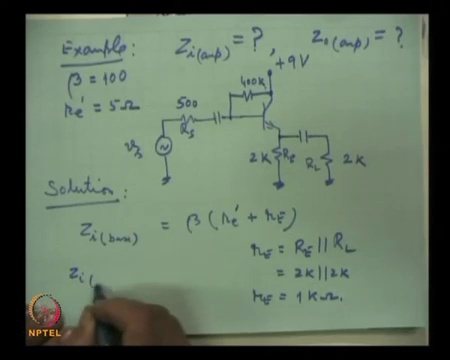 Example: Zi(amp) = ?, zo(amp) = ?
β = 100
re' = 5Ω
+9V
400K
500
Rs
vs
2K RE
RL 2K
Solution:
Zi(base) = β(re' + rE)
rE = RE || RL
= 2K || 2K
rE = 1KΩ.
zi(
NPTEL